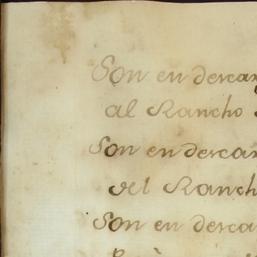 Son en descar
al Rancho
Son en descar
del Ranch
Son en desca